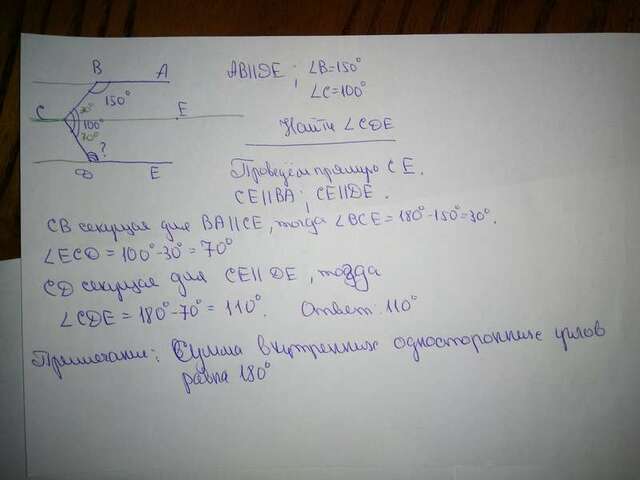 B A
150°
C 30° 100° 70° E
?
D E
AB||DE ; ∠B=150°
∠C=100°
Найти ∠CDE
Проведём прямую CE.
CE||BA ; CE||DE.
CB секущая для BA||CE, тогда ∠BCE = 180°-150°=30°.
∠ECD = 100°-30° = 70°
CD секущая для CE||DE, тогда
∠CDE = 180°-70° = 110°. Ответ: 110°
Примечание: Сумма внутренних односторонних углов
равна 180°